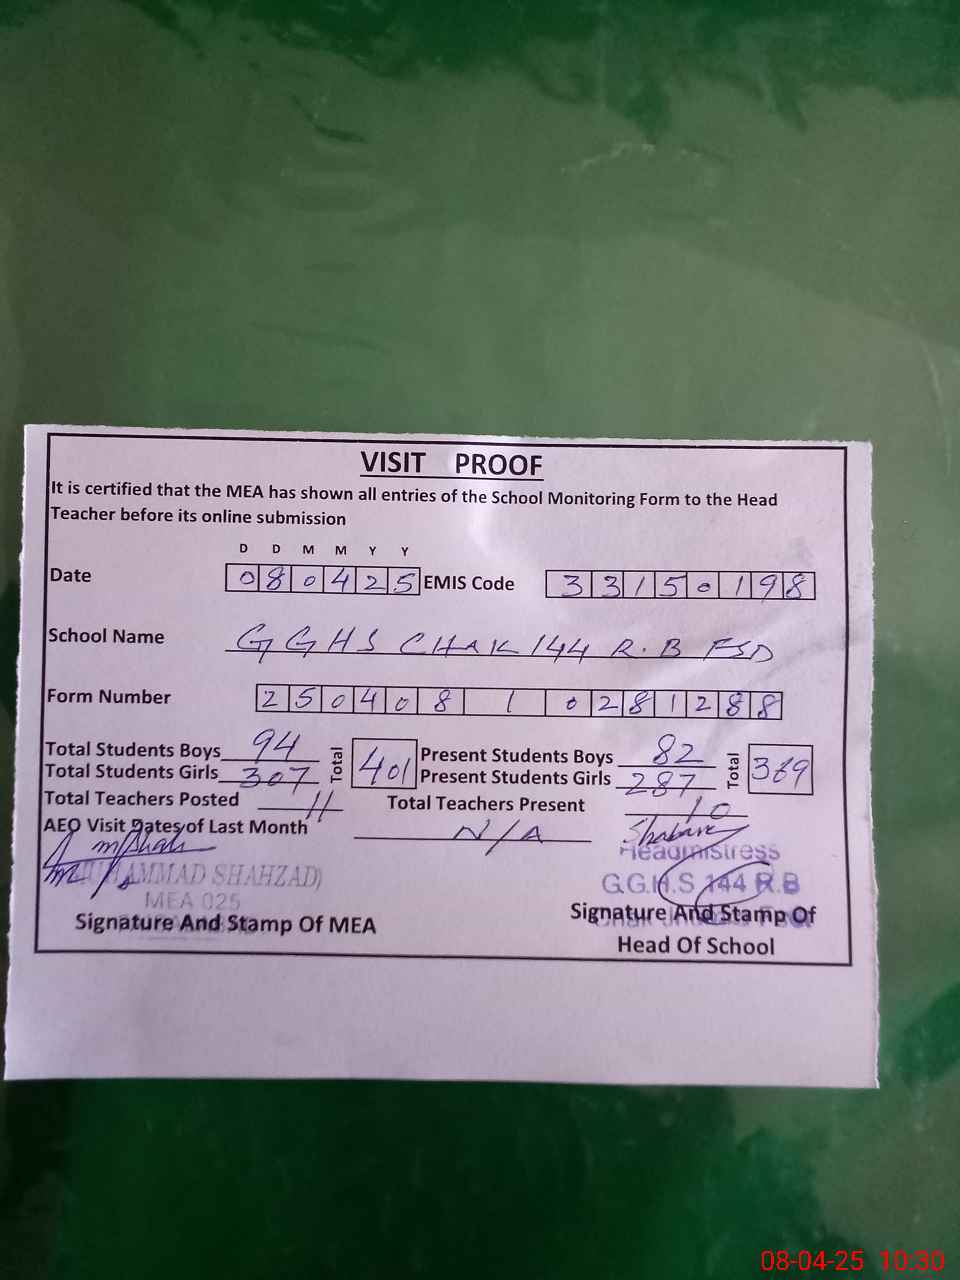 VISIT PROOF
It is certified that the MEA has shown all entries of the School Monitoring Form to the Head
Teacher before its online submission
D D M M Y Y
Date 080425 EMIS Code 33150198
School Name GGHS CHAK 144 R.B FSD
Form Number 250408 1 0281288
Total Students Boys 94 Total 401 Present Students Boys 82 Total 369
Total Students Girls 307 Present Students Girls 287
Total Teachers Posted 11 Total Teachers Present 10
AEO Visit Dates of Last Month N/A
Headmistress
(MUHAMMAD SHAHZAD) G.G.H.S 144 R.B
MEA 025
Signature And Stamp Of MEA Signature And Stamp Of
Head Of School
08-04-25 10:30